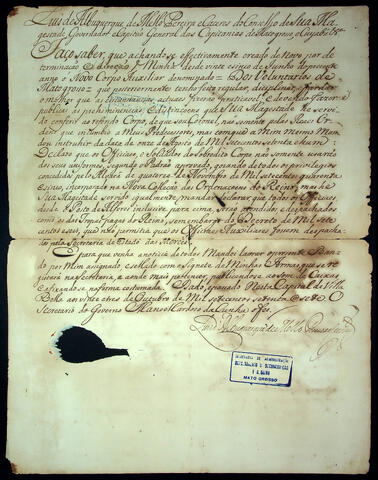 Luis de Albuquerque de Mello Pereira e Caceres do Conselho de Sua Ma
gestade, Governador e Capitão General das Capitanias do Matogroso, e Cuyabá
Faço saber, que achandose effectivamente creado de novo por de
terminação e direcção Minha desde vinte e sinco de Junho de
anno o Novo Corpo Auxiliar denominado = Dos Voluntarios de
Matogroso = que posteriormente tenho feito regular, disciplinar,
o melhor que as circunstancias actuaes tinhão permitido, e devendo fazer
publicas as distinções que Sua Magestade he servi
do conferir ao referido Corpo, de que sou Coronel, não somente pelas Suas Or
dens que intimou a Meus Predecessores, mas com que a Mim mesmo Man
dou instruhir da data de onze de Agosto de Mil setecentos setenta e hum:
Declaro que os Officiaes, e Soldados do Sobredito Corpo não somente
dos seus uniformes, segundo o Padrão aprovado, gozando de todos os privilegios
concedidos pelo Alvará de quatorze de Novembro de Mil setecentos quarenta
e sinco, incorporado na Nova Colleção das Ordenações do Reino, mas he
Sua Magestade servido igualmente, mandar declarar que todos os Officiaes
desde o Posto de Alferes inclusive para cima, serão attendidos e despachados
como os das Tropas pagas do Reino, sem embargo do Decreto de Mil sete
centos e seis, que não permitia que os Officiaes Auxiliares fossem despacha
dos pela Secretaria de Estado das Mercês.
E para que venha a noticia de todos Mandei lavrar o presente Ban
do por Mim asignado e sellado com o Signete de Minhas Armas que se re
gistará na Secretaria, e aonde mais pertencer, publicandose ao som de Caixas
e afixando se na forma costumada. Dado, e passado Nesta Capital de Villa
Bella aos vinte e tres de Outubro de Mil setecentos setenta e sete. O
Secretario do Governo Manoel Cardozo da Cunha o fes.
Luis de Albuquerque de Mello Pereira e Caceres
SECRETARIA DE ADMINISTRAÇÃO
MATO GROSSO